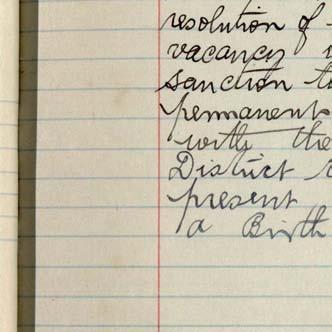 resolution of
vacancy
sanction
permanent
with the
District
present
a Birth